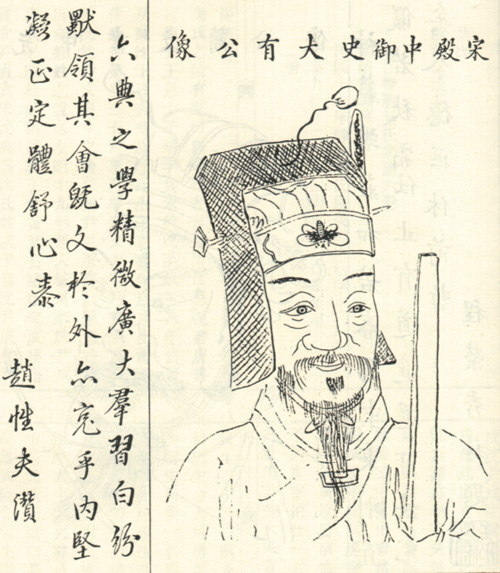 宋殿中御史大有公像
六典之學精微廣大羣習白紛
默領其會旣文於外亦充乎內堅
凝正定體舒心泰
趙性夫讚